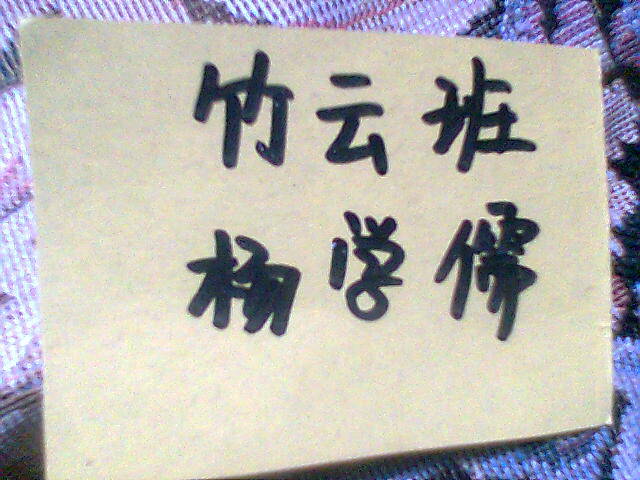 竹云班
杨学儒